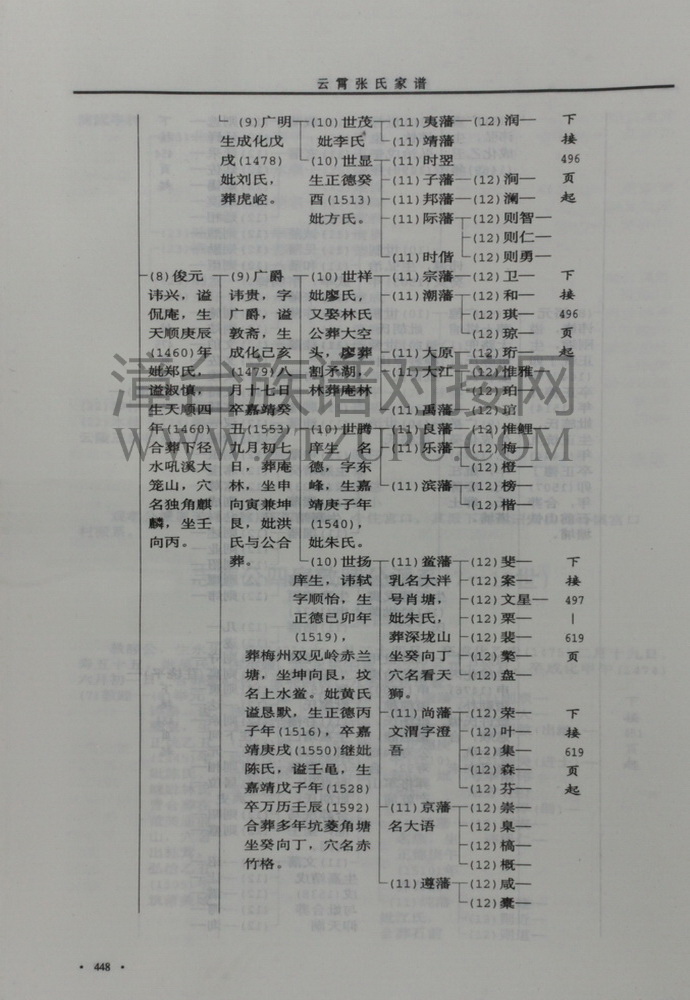 云霄张氏家谱
(9)广明 (10)世茂 (11)夷藩 (12)润 下
生成化戊 妣李氏 (11)靖藩 接
戌(1478) (10)世显 (11)时翌 496
妣刘氏， 生正德癸 (11)子藩 (12)涧 页
葬虎崆。 酉(1513) (11)邦藩 (12)澜 起
妣方氏。 (11)际藩 (12)则智
(12)则仁
(11)时偕 (12)则勇
(8)俊元 (9)广爵 (10)世祥 (11)宗藩 (12)卫 下
讳兴，谥 讳贵，字 妣廖氏， (11)潮藩 (12)和 接
侃庵，生 广爵，谥 又娶林氏 (12)琪 496
天顺庚辰 敦斋，生 公葬大空 (12)琼 页
(1460)年 成化己亥 头，廖葬 (11)大原 (12)珩 起
妣郑氏， (1479)八 割矛湖， (11)大江 (12)惟雅
谥淑慎， 月十七日 林葬庵林 (12)珀
生天顺四 卒嘉靖癸 (11)禹藩 (12)琯
年(1460) 丑(1553) (10)世腾 (11)良藩 (12)惟鲤
合葬下径 九月初七 庠生 名 (11)乐藩 (12)梅
水吼溪大 日，葬庵 德，字东 (12)橙
笼山，穴 林，坐申 峰，生嘉 (11)滨藩 (12)榜
名独角麒 向寅兼坤 靖庚子年 (12)楷
麟，坐壬 艮，妣洪 (1540)，
向丙。 氏与公合 妣朱氏。
葬。 (10)世扬 (11)鲎藩 (12)斐 下
庠生，讳轼 乳名大泮 (12)案 接
字顺怡，生 号肖塘， (12)文星 497
正德已卯年 妣朱氏， (12)栗 |
(1519)， 葬深垅山 (12)裴 619
葬梅州双见岭赤兰 坐癸向丁 (12)檠 页
塘，坐坤向艮，坟 穴名看天 (12)盘
名上水鲎。妣黄氏 狮。
谥恳默，生正德丙 (11)尚藩 (12)荣 下
子年(1516)，卒嘉 文渭字澄 (12)叶 接
靖庚戌(1550)继妣 吾 (12)集 619
陈氏，谥壬黾，生 (12)森 页
嘉靖戊子年(1528) (12)芬 起
卒万历壬辰(1592) (11)京藩 (12)崇
合葬多年坑菱角塘 名大语 (12)臬
坐癸向丁，穴名赤 (12)槁
竹格。 (12)概
(11)遵藩 (12)咸
(12)橐
· 448 ·
漳台族谱对接网
WWW.ZTZUPU.COM